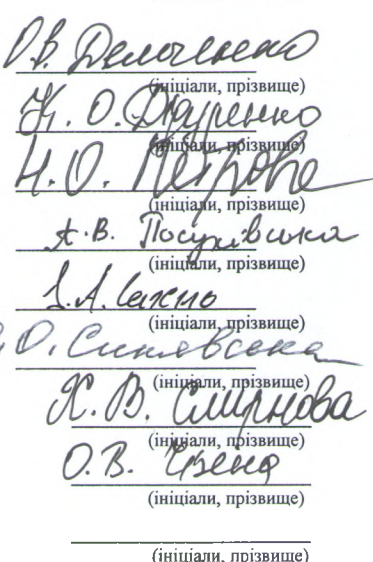 О.В. Демченко
(ініціали, прізвище)
К. О. Дзуренко
(ініціали, прізвище)
Н.О. Петрова
(ініціали, прізвище)
А.В.
(ініціали, прізвище)
І.А. Сахно
(ініціали, прізвище)
О. Синявська
(ініціали, прізвище)
Х. В. Смирнова
(ініціали, прізвище)
О.В.
(ініціали, прізвище)
(ініціали, прізвище)